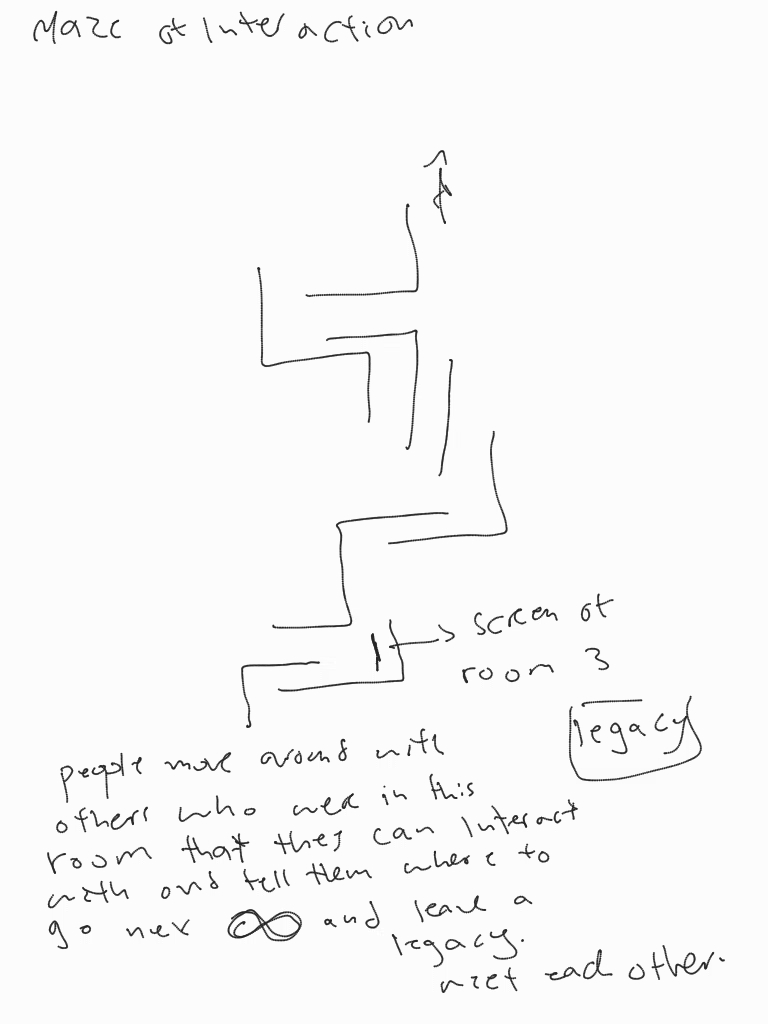 Maze of Interaction
screen of
room 3
legacy
people move around with
others who were in this
room that they can Interact
with and tell them where to
go nex ∞ and leave a
legacy.
meet each other.